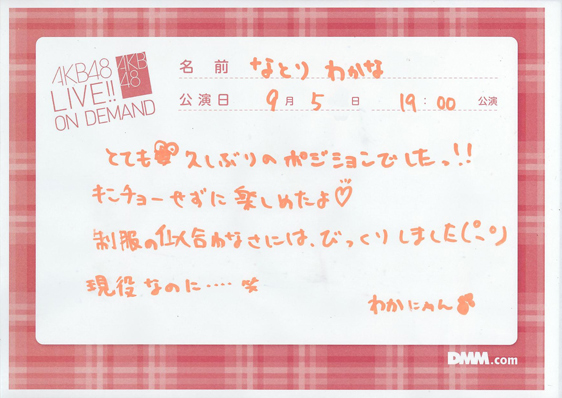 AKB48
LIVE!!
ON DEMAND
AKB
48
名 前 なとり わかな
公演日 9 月 5 日 19 : 00 公演
とても 久しぶりのポジションでしたっ!!
キンチョーせずに楽しめたよ♡
制服の似合わなさには、びっくりしました(°_°)
現役なのに‥‥ 笑
わかにゃん
DMM.com